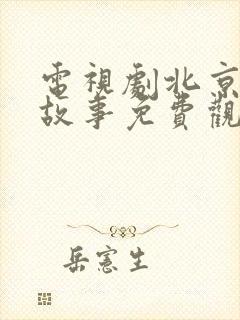 電視劇北京
故事免費觀
岳憲生